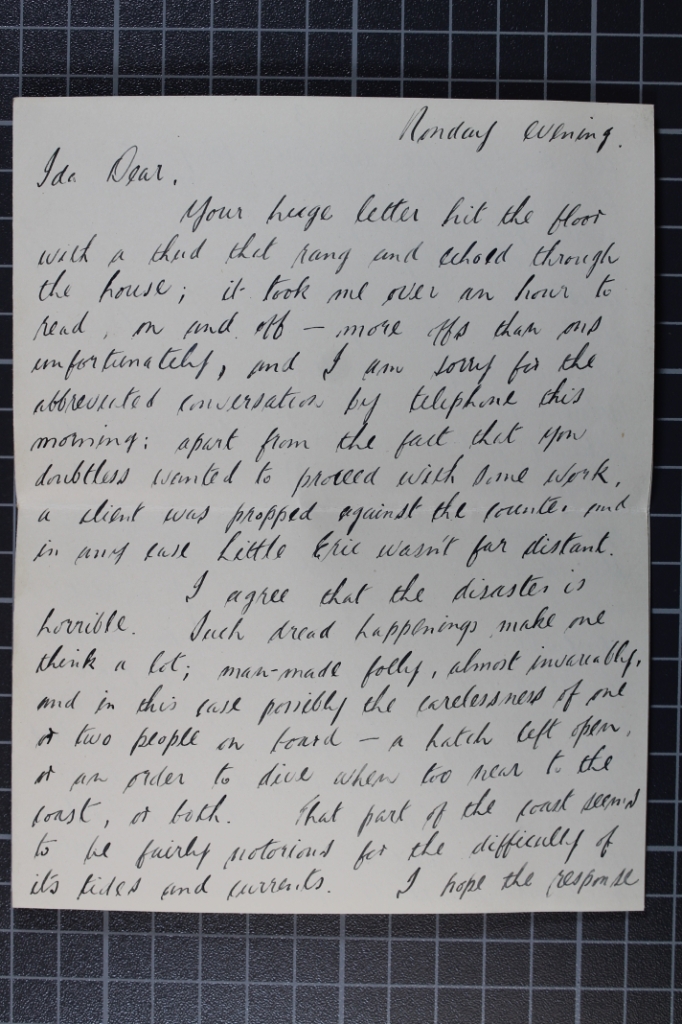 Monday evening.
Ida Dear,
Your huge letter hit the floor
with a thud that rang and echoed through
the house; it took me over an hour to
read, on and off — more offs than ons
unfortunately, and I am sorry for the
abbreviated conversation by telephone this
morning: apart from the fact that you
doubtless wanted to proceed with some work,
a client was propped against the counter and
in any case Little Eric wasn't far distant.
I agree that the disaster is
horrible. Such dread happenings make one
think a lot; man-made folly, almost invariably,
and in this case possibly the carelessness of one
or two people on board — a hatch left open,
or an order to dive when too near to the
coast, or both. That part of the coast seems
to be fairly notorious for the difficulty of
its tides and currents. I hope the response